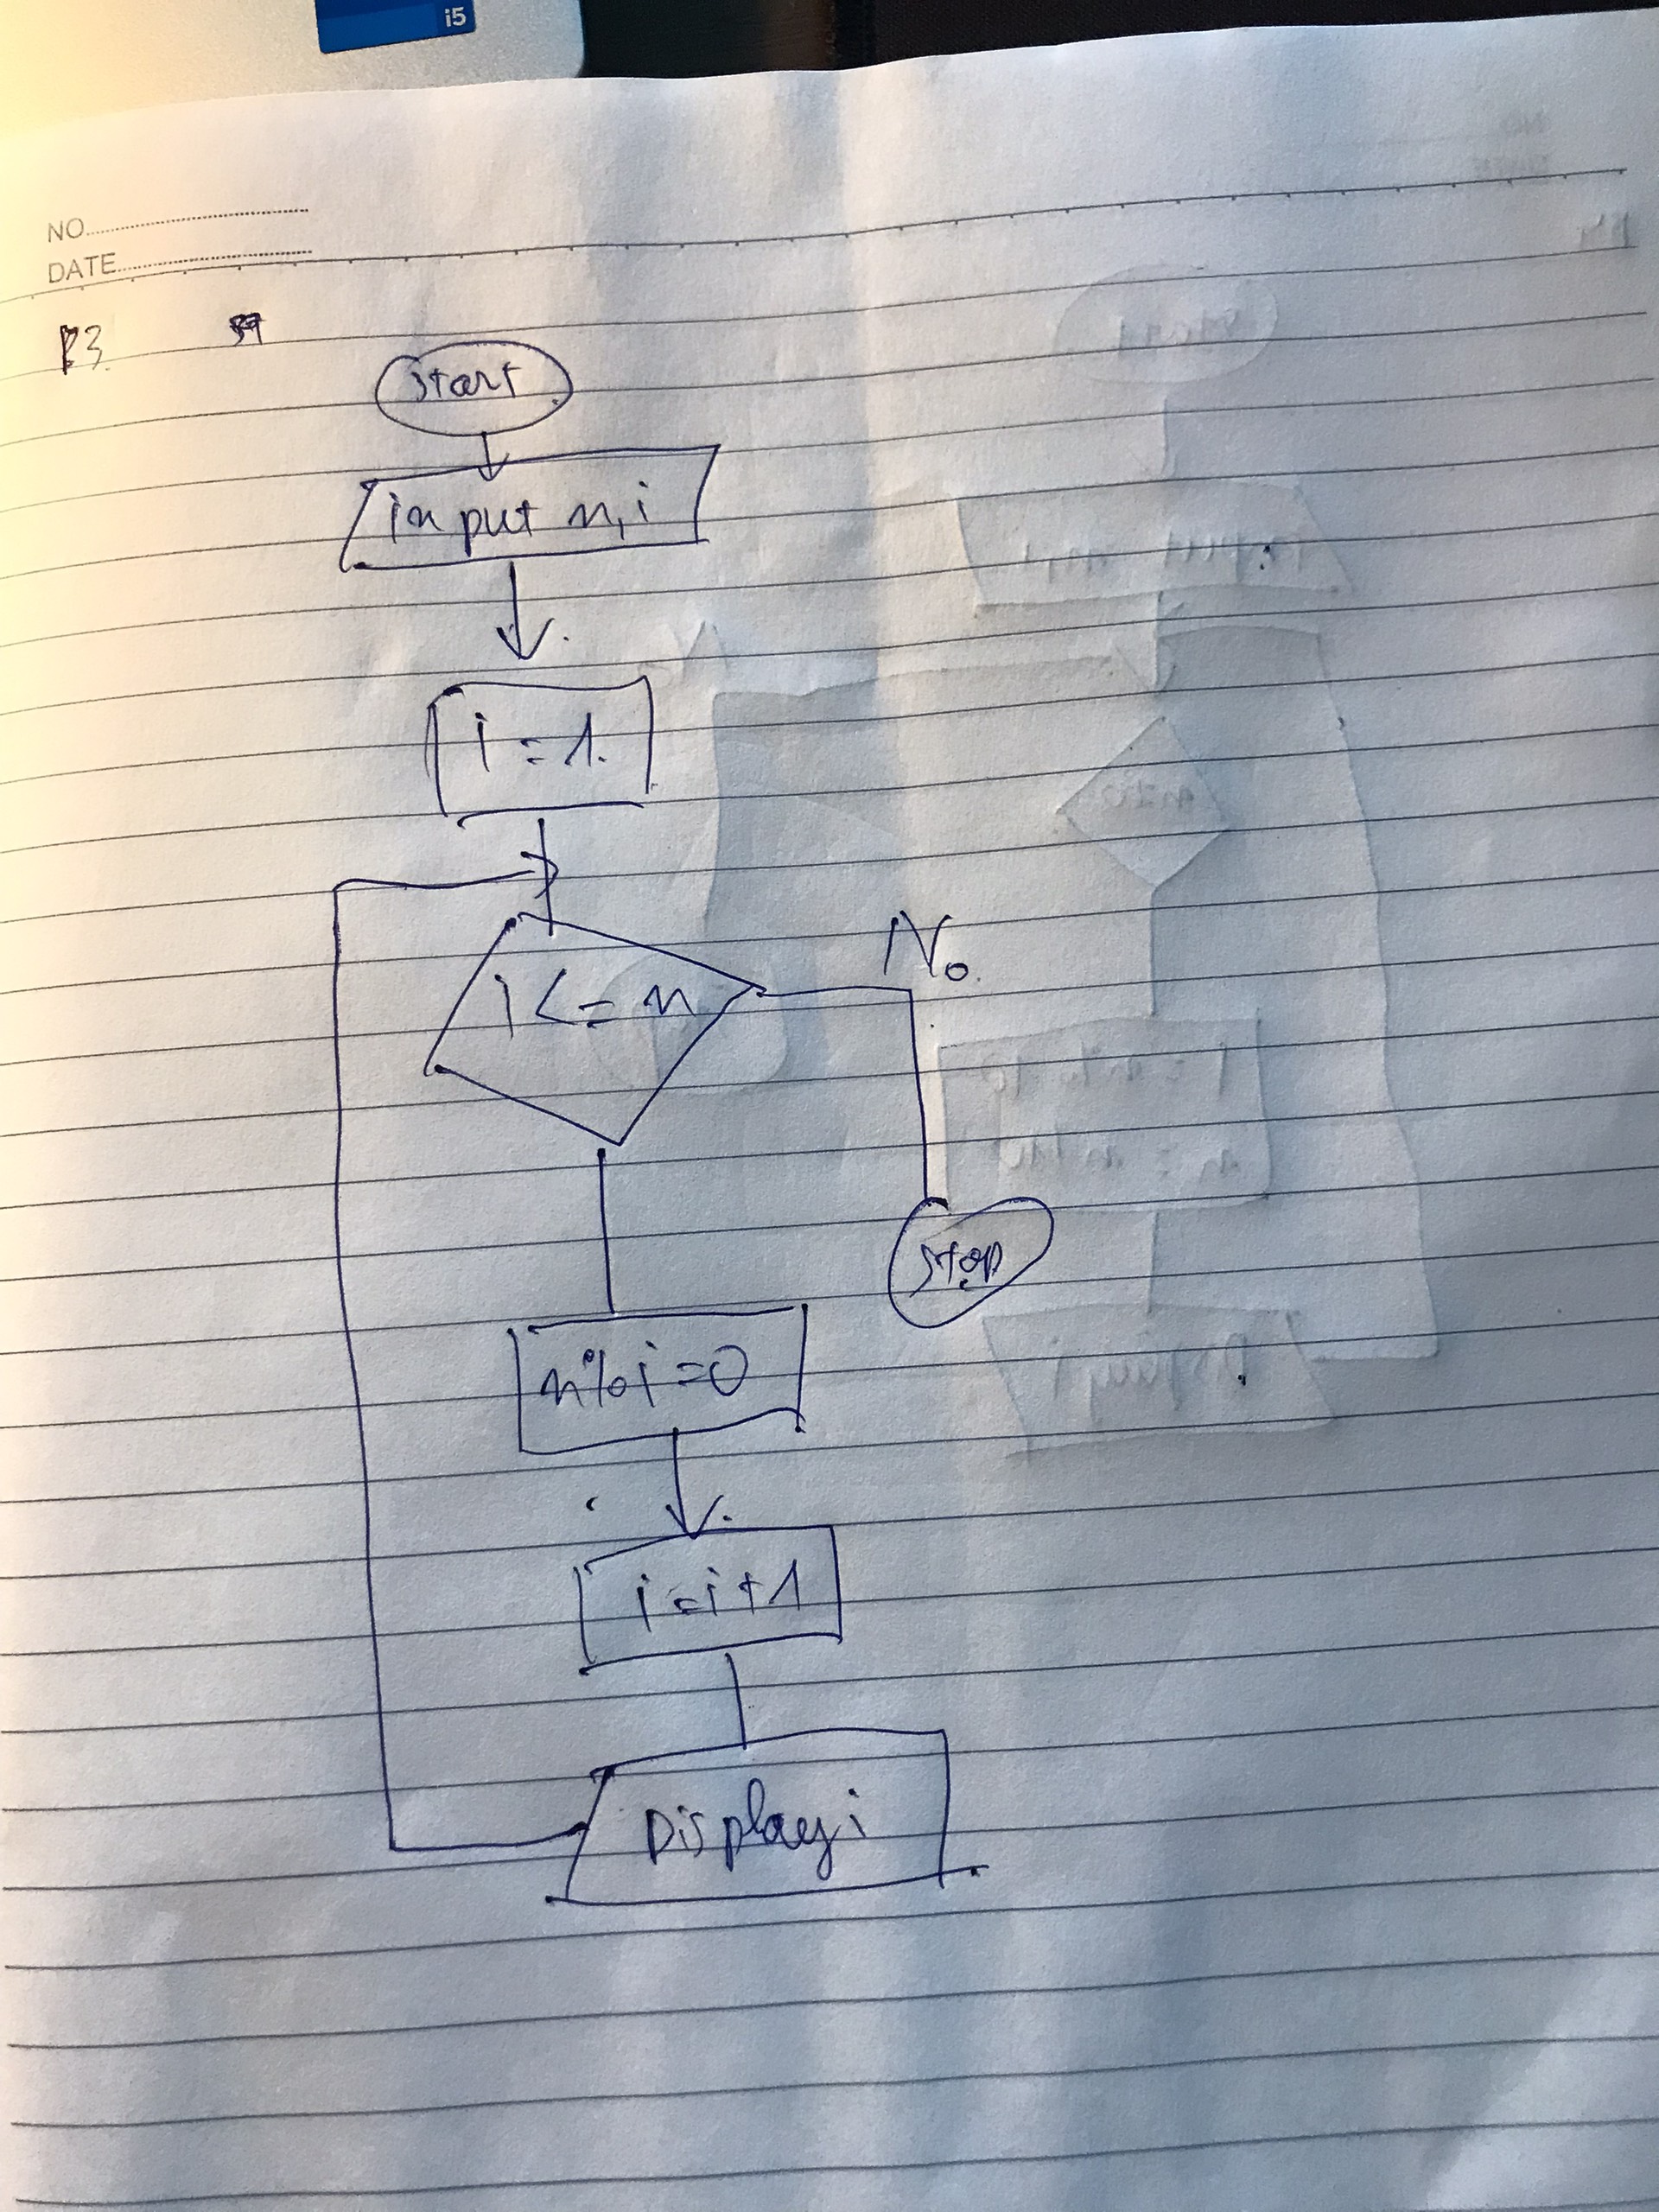 i5
NO
DATE
P3.
Start
input n, i
i = 1.
i <= n
No.
Stop
n % i = 0
i = i + 1
Display i